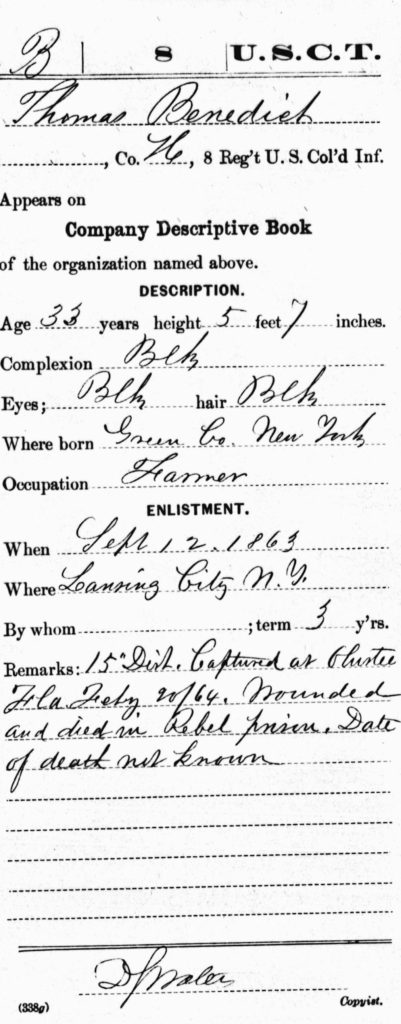 B | 8 | U.S.C.T.
Thomas Benedict
, Co. H, 8 Reg't U. S. Col'd Inf.
Appears on
Company Descriptive Book
of the organization named above.
DESCRIPTION.
Age 33 years height 5 feet 7 inches.
Complexion Blk
Eyes; Blk hair Blk
Where born Green Co. New York
Occupation Farmer
ENLISTMENT.
When Sept 12. 1863
Where Lansing City N.Y.
By whom ; term 3 y'rs.
Remarks: 15" Dist. Captured at Olustee
Fla Feby 20/64. Wounded
and died in Rebel prison. Date
of death not known
(338g) Copyist.